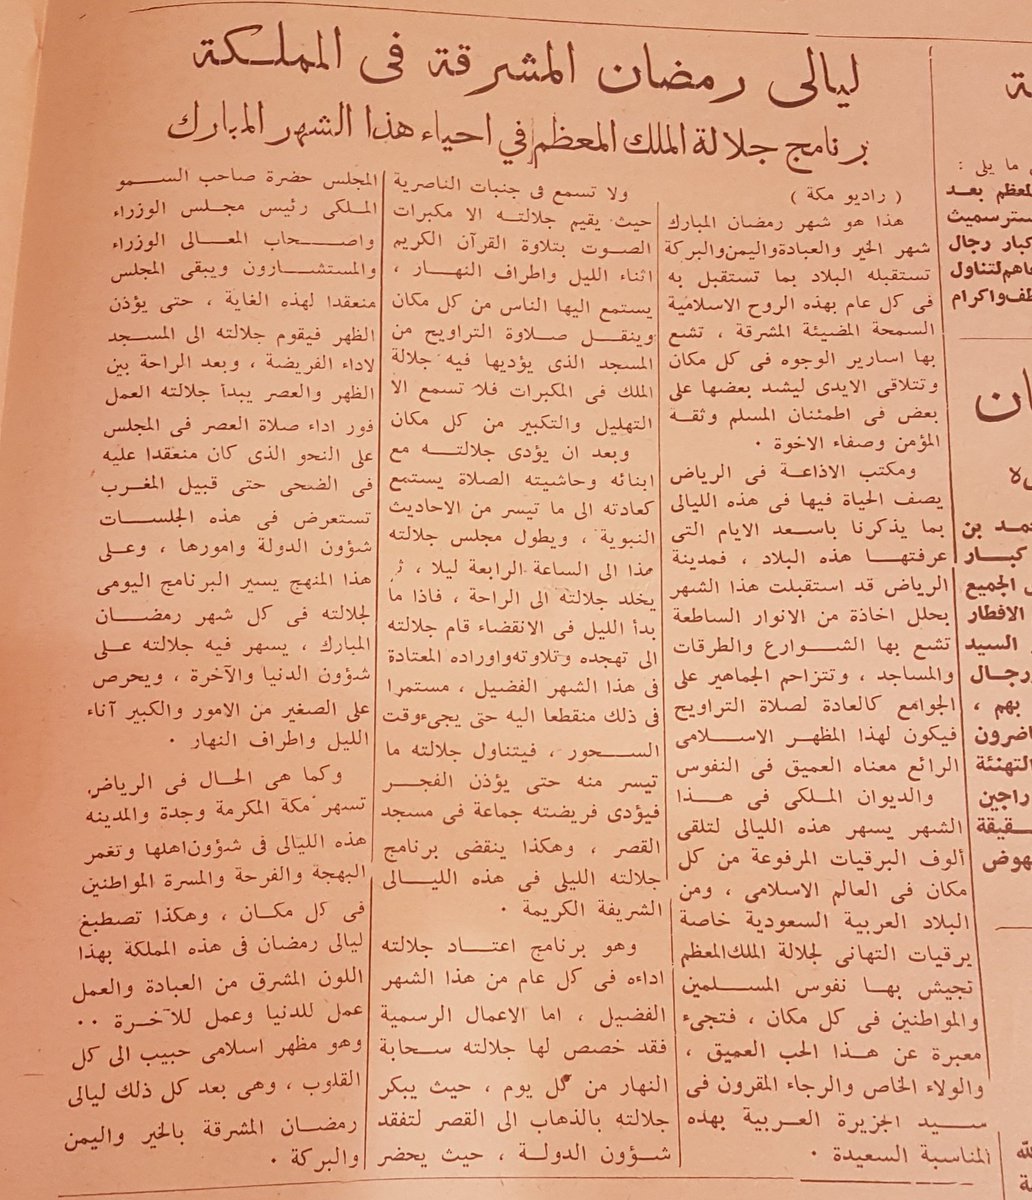 ليالى رمضان المشرقة فى المملكة
برنامج جلالة الملك المعظم في احياء هذا الشهر المبارك
( راديو مكة )
هذا هو شهر رمضان المبارك
شهر الخير والعبادة واليمن والبركة
تستقبله البلاد بما تستقبل به
فى كل عام بهذه الروح الاسلامية
السمحة المضيئة المشرقة ، تشع
بها اسارير الوجوه فى كل مكان
وتتلاقى الايدى ليشد بعضها على
بعض فى اطمئنان المسلم وثقة
المؤمن وصفاء الاخوة ٠
ومكتب الاذاعة فى الرياض
يصف الحياة فيها فى هذه الليالى
بما يذكرنا باسعد الايام التى
عرفتها هذه البلاد ، فمدينة
الرياض قد استقبلت هذا الشهر
بحلل اخاذة من الانوار الساطعة
تشع بها الشوارع والطرقات
والمساجد ، وتتزاحم الجماهير على
الجوامع كالعادة لصلاة التراويح
فيكون لهذا المظهر الاسلامى
الرائع معناه العميق فى النفوس
والديوان الملكى فى هذا
الشهر يسهر هذه الليالى لتلقى
ألوف البرقيات المرفوعة من كل
مكان فى العالم الاسلامى ، ومن
البلاد العربية السعودية خاصة
برقيات التهانى لجلالة الملك المعظم
تجيش بها نفوس المسلمين
والمواطنين فى كل مكان ، فتجىء
معبرة عن هذا الحب العميق ،
والولاء الخاص والرجاء المقرون فى
سيد الجزيرة العربية بهذه
المناسبة السعيدة ٠
ولا تسمع فى جنبات الناصرية
حيث يقيم جلالته الا مكبرات
الصوت بتلاوة القرآن الكريم
اثناء الليل واطراف النهار ،
يستمع اليها الناس من كل مكان
وينقل صلاوة التراويح من
المسجد الذى يؤديها فيه جلالة
الملك فى المكبرات فلا تسمع الا
التهليل والتكبير من كل مكان
وبعد ان يؤدى جلالته مع
ابنائه وحاشيته الصلاة يستمع
كعادته الى ما تيسر من الاحاديث
النبوية ، ويطول مجلس جلالته
هذا الى الساعة الرابعة ليلا ،
يخلد جلالته الى الراحة ، فاذا ما
بدأ الليل فى الانقضاء قام جلالته
الى تهجده وتلاوته واوراده المعتادة
فى هذا الشهر الفضيل ، مستمرا
فى ذلك منقطعا اليه حتى يجىء وقت
السحور ، فيتناول جلالته ما
تيسر منه حتى يؤذن الفجر
فيؤدى فريضته جماعة فى مسجد
القصر ، وهكذا ينقضى برنامج
جلالته الليلى فى هذه الليالى
الشريفة الكريمة ٠
وهو برنامج اعتاد جلالته
اداءه فى كل عام من هذا الشهر
الفضيل ، اما الاعمال الرسمية
فقد خصص لها جلالته سحابة
النهار من كل يوم ، حيث يبكر
جلالته بالذهاب الى القصر لتفقد
شؤون الدولة ، حيث يحضر
المجلس حضرة صاحب السمو
الملكى رئيس مجلس الوزراء
واصحاب المعالى الوزراء
والمستشارون ويبقى المجلس
منعقدا لهذه الغاية ، حتى يؤذن
الظهر فيقوم جلالته الى المسجد
لاداء الفريضة ، وبعد الراحة بين
الظهر والعصر يبدأ جلالته العمل
فور اداء صلاة العصر فى المجلس
على النحو الذى كان منعقدا عليه
فى الضحى حتى قبيل المغرب
تستعرض فى هذه الجلسات
شؤون الدولة وامورها ، وعلى
هذا المنهج يسير البرنامج اليومى
لجلالته فى كل شهر رمضان
المبارك ، يسهر فيه جلالته على
شؤون الدنيا والآخرة ، ويحرص
على الصغير من الامور والكبير آناء
الليل واطراف النهار ٠
وكما هى الحال فى الرياض
تسهر مكة المكرمة وجدة والمدينه
هذه الليالى فى شؤون اهلها وتغمر
البهجة والفرحة والمسرة المواطنين
فى كل مكان ، وهكذا تصطبغ
ليالى رمضان فى هذه المملكة بهذا
اللون المشرق من العبادة والعمل
عمل للدنيا وعمل للآخرة ٠٠
وهو مظهر اسلامى حبيب الى كل
القلوب ، وهى بعد كل ذلك ليالى
رمضان المشرقة بالخير واليمن
والبركة ٠
ما يلى :
المعظم بعد
كبار رجال
لتناول
واكرام
بن
كبار
الجميع
الافطار
السيد
رجال
بهم ،
التهنئة
راجين